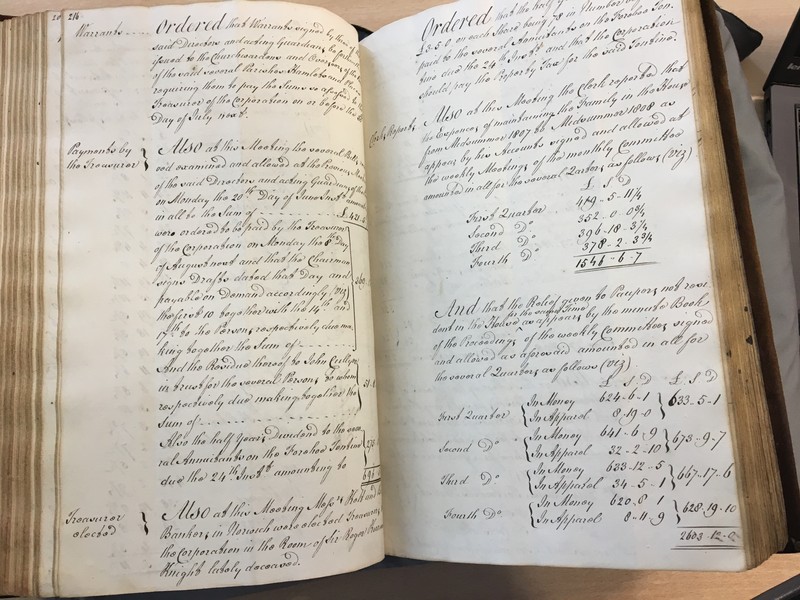 216
Warrants
Ordered that Warrants signed by the
said Directors and acting Guardians be forthwith
issued to the Churchwardens and Overseers of the
of the said several Parishes Hamlets and
requiring them to pay the Sums so assessed
Treasurer of the Corporation on or before the
Day of July next.
Payments by
the Treasurer
Also at this Meeting the several
examined and allowed at the
of the said Directors and acting Guardians
on Monday the 20th Day of June Inst
in all to the Sum of
were ordered to be paid by the Treasurer
of the Corporation on Monday the 8th Day
of August next and that the Chairman
signs Drafts dated that Day and
payable on Demand accordingly (Viz)
the first 10 together with the 14th and
17th to the Persons respectively due ma-
king together the Sum of
And the Residue thereof to John
in trust for the several Persons to whom
respectively due making together the
Sum of
Also the half Years Dividend to the seve-
ral Annuitants on the Forehoe Tontine
due the 24th Inst amounting to
Treasurer
elected
Also at this Meeting Messrs
Bankers in Norwich were elected Treasurers
the Corporation in the Room of Sir Roger
Knight lately deceased.
Ordered that the half
£3-5-0 on each Share being in Number
paid to the several Annuitants on the Forehoe Ton-
tine due the 24th Inst and that the Corporation
should pay the Property Tax for the said Tontine.
Clerks Report
Also at this Meeting the Clerk reported that
the Expences of maintaining the Family in the House
from Midsummer 1807 to Midsummer 1808 as
appear by his Accounts signed and allowed at
the weekly Meetings of the monthly Committee
amounted in all for the several Quarters as follows (Viz)
£ S D
First Quarter 419-5-11¼
Second Do 352-0-0¾
Third Do 396-18-3¼
Fourth Do 378-2-3¾
1546-6-7
And that the Relief given to Paupers not resi-
for the same Time
dent in the House as appears by the minute Book
of the Proceedings of the weekly Committees signed
and allowed as aforesaid amounted in all for
the several Quarters as follows (Viz)
£ S D £ S D
First Quarter In Money 624-6-1 633-5-1
In Apparel 8-19-0
Second Do In Money 641-6-9 673-9-7
In Apparel 32-2-10
Third Do In Money 633-12-5 667-17-6
In Apparel 34-5-1
Fourth Do In Money 620-8-1 628-19-10
In Apparel 8-11-9
2603-12-0